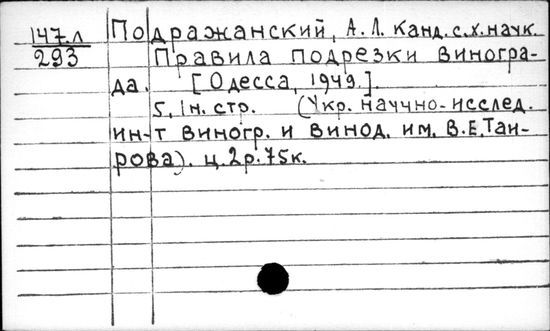 147.л
293
Подражанский, А.Л. канд.с.х.наук.
Правила подрезки виногра-
да. [Одесса, 1949.].
5, 1н. стр. (Укр. научно-исслед.
ин-т виногр. и винод. им. В.Е.Таи-
рова). ц.2р.75к.